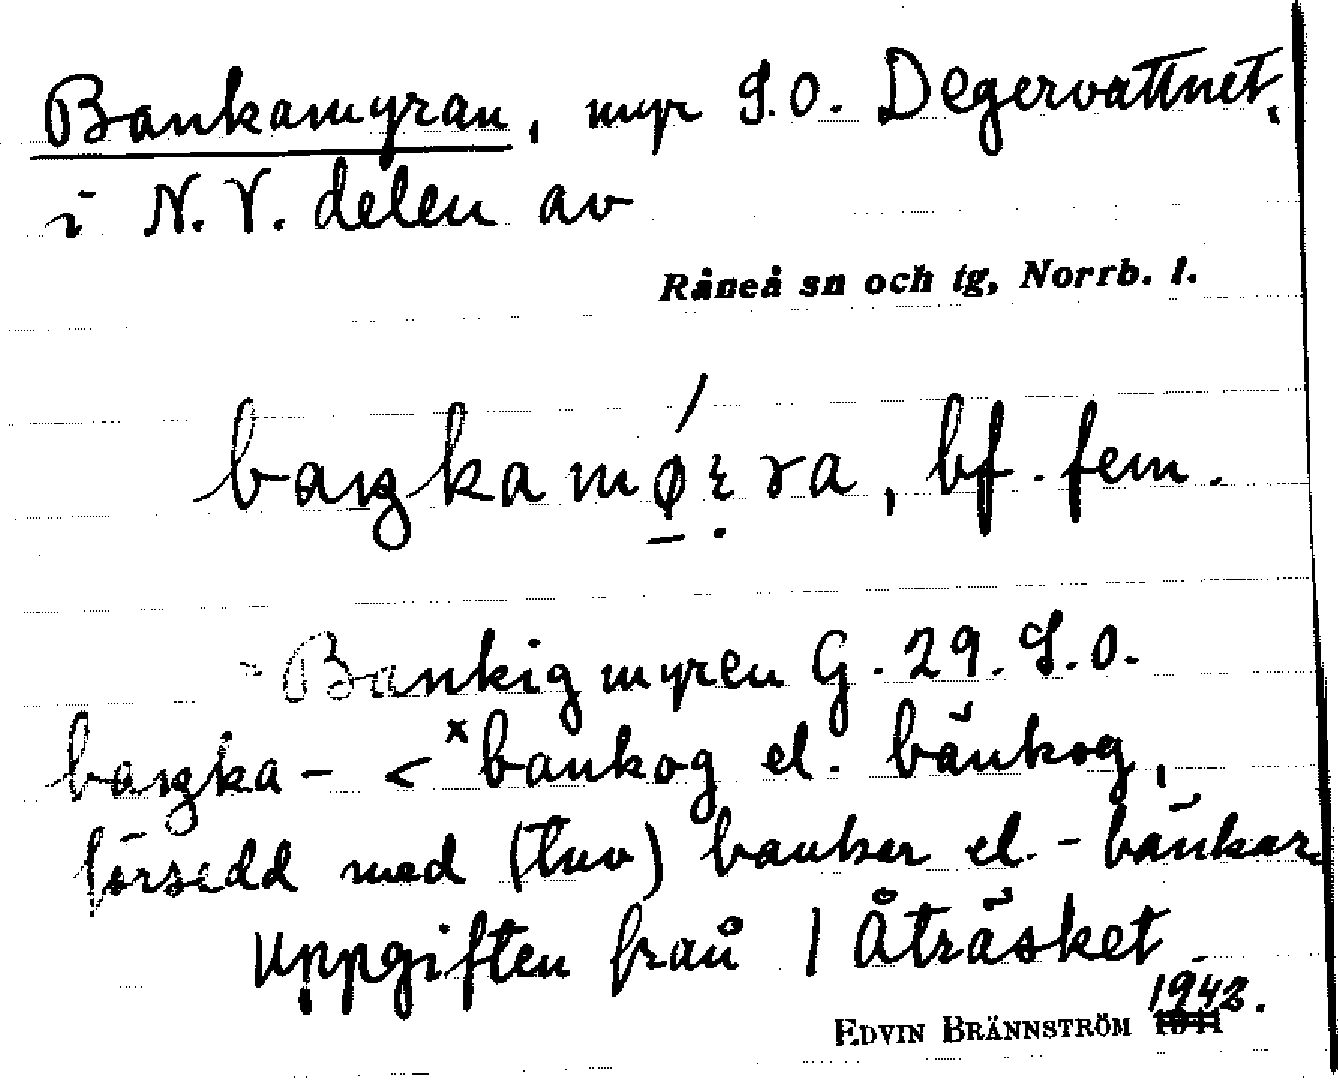 Bankamyran, myr S.O. Degervattnet,
i N.V. delen av
Råneå sn och tg, Norrb. l.
baŋkamø̱ɛ̣ra, bf. fem.
Bankigmyren G. 29. S.O.
baŋka- < *bankog el. bänkog,
försedd med (tuv) bankar el. -bänkar
Uppgiften från 1 Åträsket
EDVIN BRÄNNSTRÖM 1942.